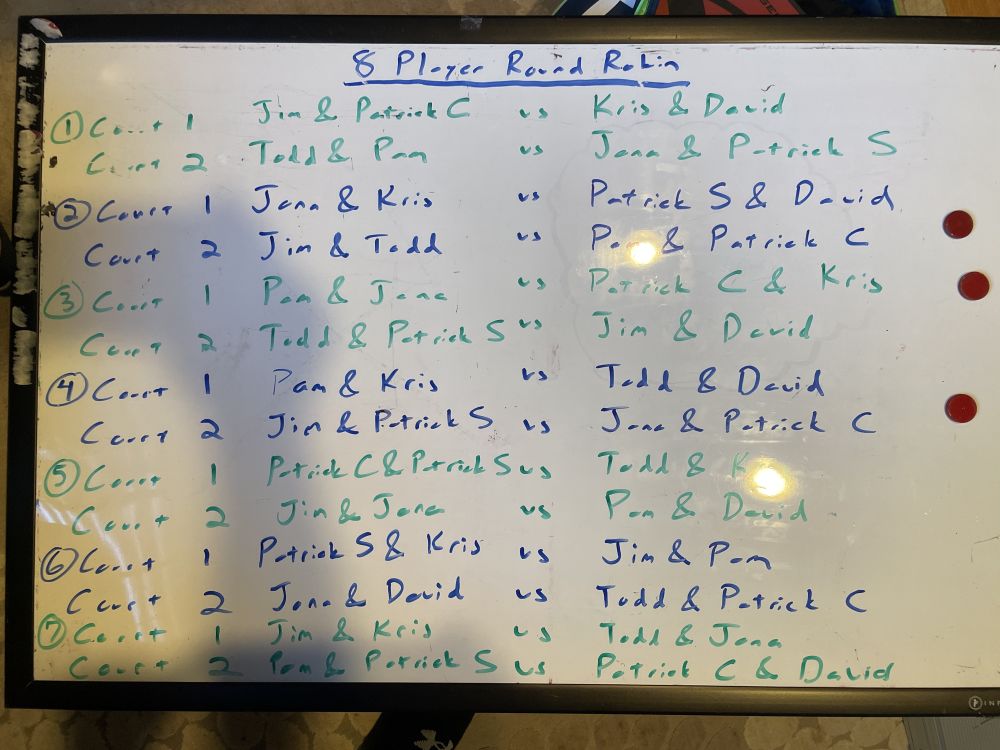 8 Player Round Robin
① Court 1 Jim & Patrick C vs Kris & David
Court 2 Todd & Pam vs Jana & Patrick S
② Court 1 Jana & Kris vs Patrick S & David
Court 2 Jim & Todd vs Pam & Patrick C
③ Court 1 Pam & Jana vs Patrick C & Kris
Court 2 Todd & Patrick S vs Jim & David
④ Court 1 Pam & Kris vs Todd & David
Court 2 Jim & Patrick S vs Jana & Patrick C
⑤ Court 1 Patrick C & Patrick S vs Todd &
Court 2 Jim & Jana vs Pam & David
⑥ Court 1 Patrick S & Kris vs Jim & Pam
Court 2 Jana & David vs Todd & Patrick C
⑦ Court 1 Jim & Kris vs Todd & Jana
Court 2 Pam & Patrick S vs Patrick C & David